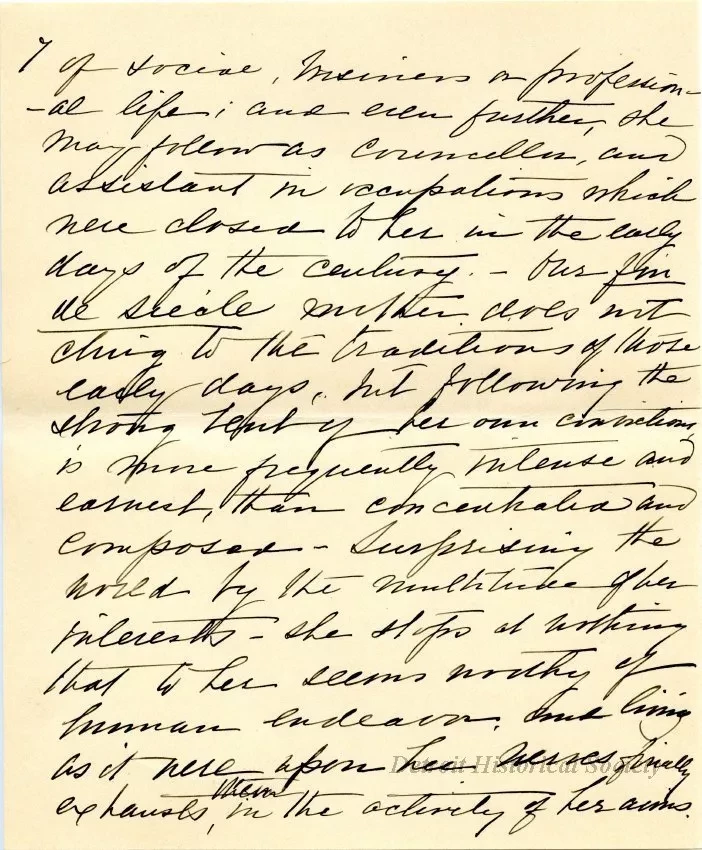 7 of social, business or profession-
-al life; and even further, she
may follow as councellor, and
assistant in occupations which
were closed to her in the early
days of the century. - Our fin
de siecle mother does not
cling to the traditions of those
early days, but following the
strong bent of her own convictions,
is more frequently intense and
earnest, than concentrated and
composed - Surprising the
world by the multitude of her
interests - she stops at nothing
that to her seems worthy of
human endeavor, and living
as it were upon her nerves, finally
Detroit Historical Society
them
exhausts, in the activity of her aims.